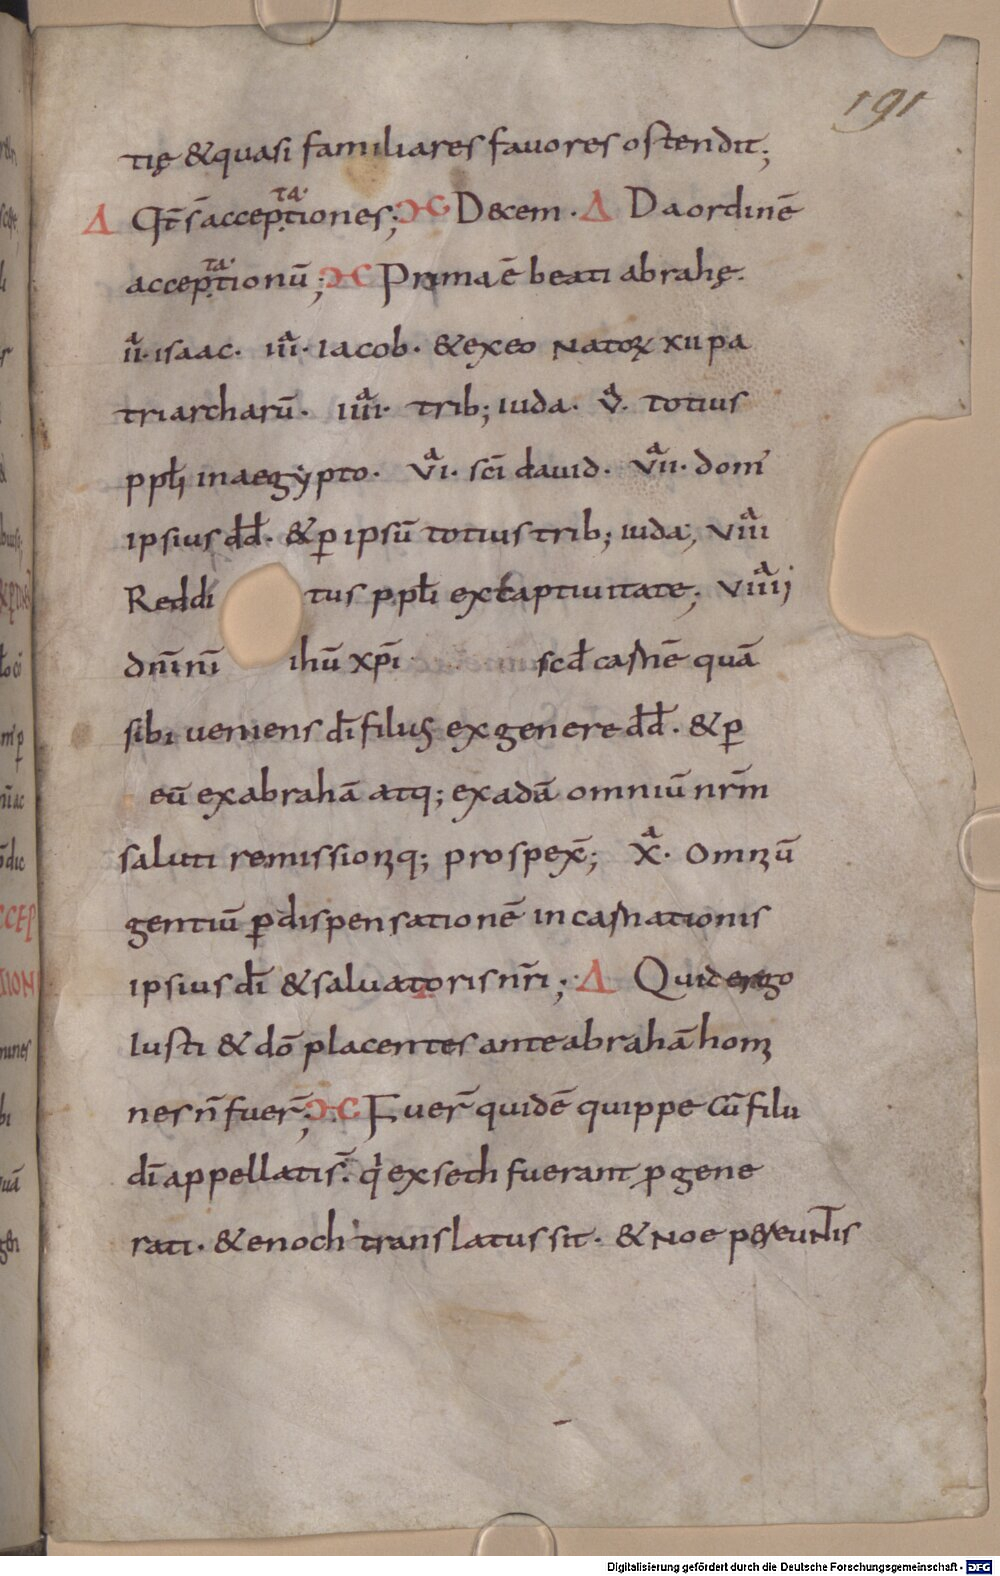 191
tię &quasi familiares fauores ostendit;
Δ Qt̄ s̄ acceptationes; ϽC Decem · Δ Da ordinē
acceptationū; ϽC Prima ē beati abrahę·
IIᵃ· isaac· IIIᵃ· Iacob· & ex eo natoꝝ XII pa
triarcharū· IIIIᵃ· trib; iuda· Vᵃ· totius
pplī in aegypto· VIᵃ· sc̄i dauid· VIIᵃ· dom'
ipsius dd̄· & ꝑ ipsū totius trib; iuda; VIIIᵃ
Reddi tus pplī ex captiuitate; VIIIIᵃ
dn̄i nr̄i ihū xp̄i scd̄ carnē quā
sibi ueniens dī filius ex genere dd̄· & ꝑ
eū ex abrahā atq; ex adā omniū nr̄m
saluti remissioniq; prospex̄; Xᵃ· Omniū
gentiū ꝑ dispensationē incarnationis
ipsius dī & saluatoris nr̄i; Δ Quid ergo
Iusti & dō placentes ante abrahā homi
nes n̄ fuer̄; ϽC Fuer̄ quidē quippe cū filii
dī appellati s̄· qi ex seth fuerant ꝓgene
rati· & enoch translatus sit· & Noe pereuntis
Digitalisierung gefördert durch die Deutsche Forschungsgemeinschaft - DFG